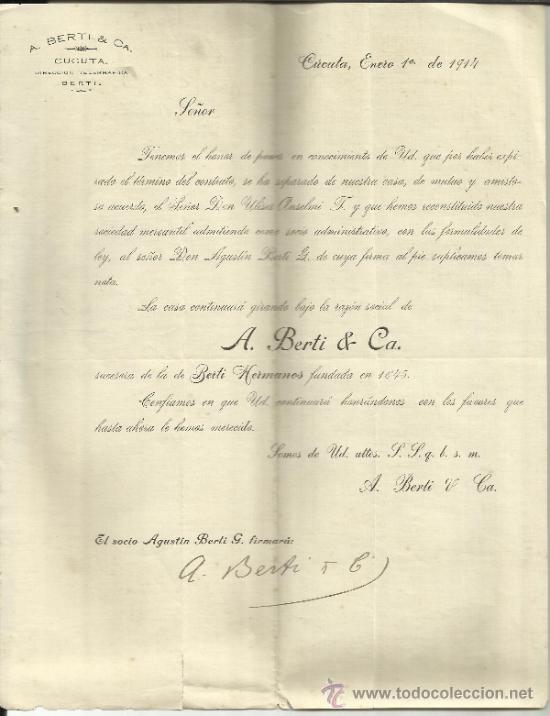 A. BERTI & CA.
CUCUTA.
DIRECCION TELEGRAFICA
BERTI.
Cúcuta, Enero 1º de 1914
Señor
Tenemos el honor de poner en conocimiento de Ud. que por haber expi-
rado el término del contrato, se ha separado de nuestra casa, de mutuo y amisto-
so acuerdo, el Señor Don Ulises Anselmi T. y que hemos reconstituido nuestra
sociedad mercantil admitiendo como socio administrativo, con las formalidades de
ley, al señor Don Agustín Berti G. de cuya firma al pie suplicamos tomar
nota.
La casa continuará girando bajo la razón social de
A. Berti & Ca.
sucesora de la de Berti Hermanos fundada en 1845.
Confiamos en que Ud. continuará honrándonos con los favores que
hasta ahora le hemos merecido.
Somos de Ud. attos. S. S. q. b. s. m.
A. Berti & Ca.
El socio Agustín Berti G. firmará:
A. Berti & C
todocoleccion
www.todocoleccion.net